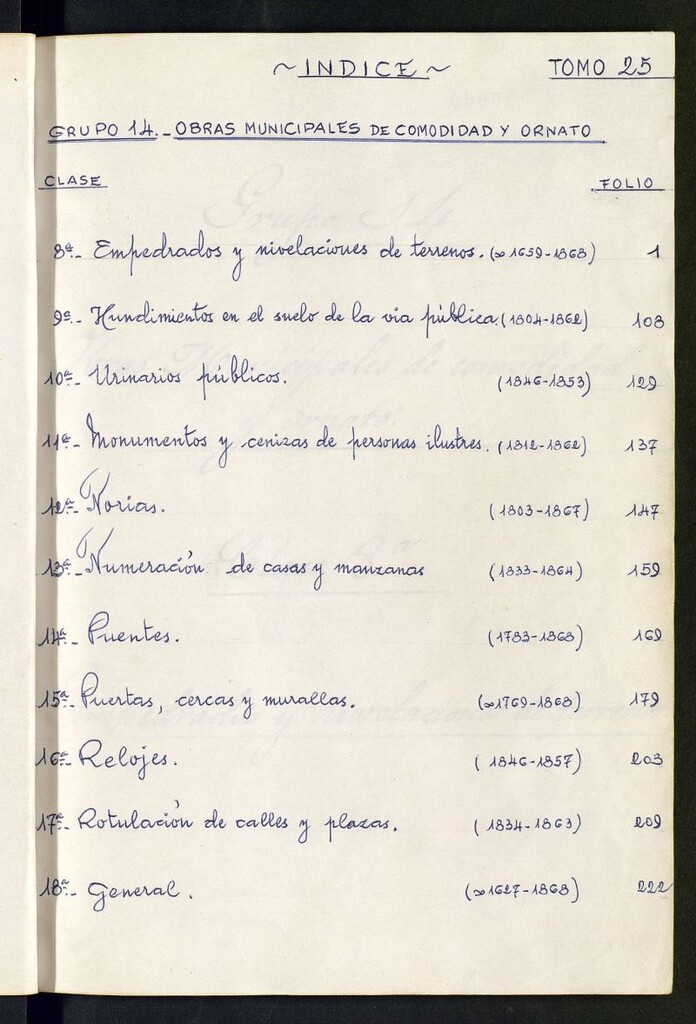 ~ INDICE ~ TOMO 25
GRUPO 14.- OBRAS MUNICIPALES DE COMODIDAD Y ORNATO
CLASE FOLIO
8ª.- Empedrados y nivelaciones de terrenos. (∞1659-1868) 1
9ª.- Hundimientos en el suelo de la via pública (1804-1862) 108
10ª.- Urinarios públicos. (1846-1853) 129
11ª.- Monumentos y cenizas de personas ilustres. (1812-1862) 137
12ª.- Norias. (1803-1867) 147
13ª.- Numeración de casas y manzanas (1833-1864) 159
14ª.- Puentes. (1783-1868) 169
15ª.- Puertas, cercas y murallas. (∞1769-1868) 179
16ª.- Relojes. (1846-1857) 203
17ª.- Rotulación de calles y plazas. (1834-1863) 209
18ª.- General. (∞1627-1868) 222